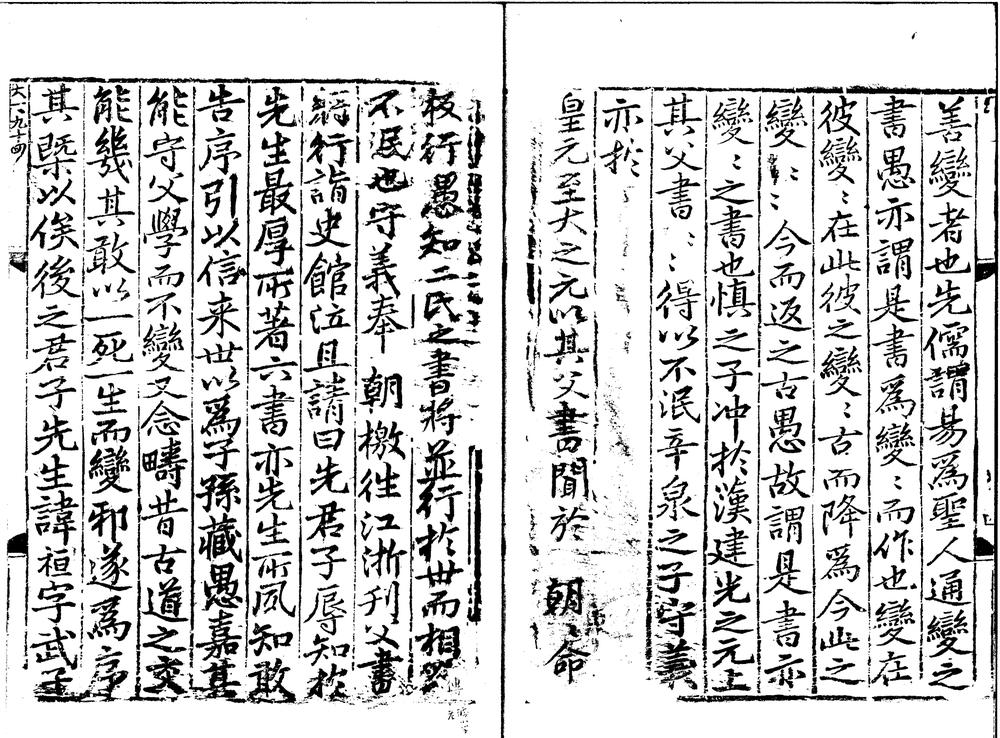 善變者也先儒謂易爲聖人通變之
書愚亦謂是書爲變〻而作也變在
彼變〻在此彼之變〻古而降爲今此之
變〻〻今而返之古愚故謂是書亦
變〻之書也慎之子冲扵漢建光之元上
其父書〻〻得以不泯辛泉之子守義
亦扵
皇元至大之元以其父書聞於 朝〻命
板行愚知二氏之書將並行扵世而相
不泯也守義奉 朝檄徃江浙刋父書
將行詣史館泣且請曰先君子辱知扵
先生最厚所著六書亦先生所夙知敢
告序引以信来世以爲子孫藏愚嘉其
能守父學而不變又念疇昔古道之交
能幾其敢以一死一生而變邪遂爲序
其槩以俟後之君子先生諱桓字武子